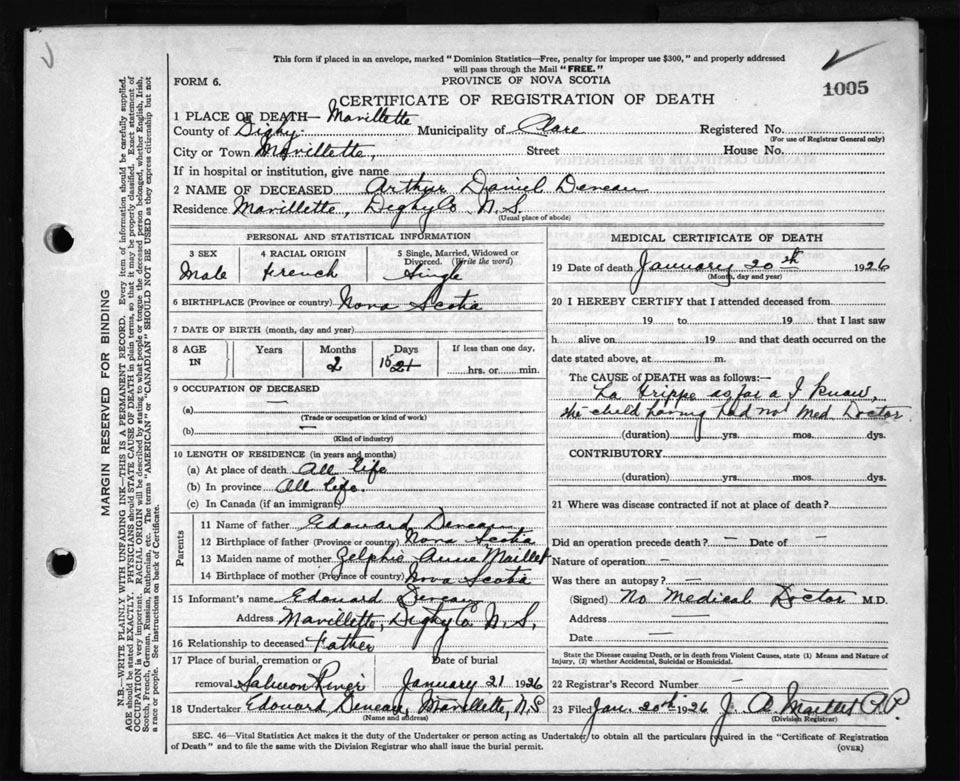 This form if placed in an envelope, marked "Dominion Statistics—Free, penalty for improper use $300," and properly addressed
will pass through the Mail "FREE."
FORM 6.
PROVINCE OF NOVA SCOTIA
1005
CERTIFICATE OF REGISTRATION OF DEATH
1 PLACE OF DEATH— Mavillette
County of Digby. Municipality of Clare Registered No.
(For use of Registrar General only)
City or Town Mavillette, Street House No.
If in hospital or institution, give name
2 NAME OF DECEASED Arthur Daniel Deneau
Residence Mavillette, Digby Co N.S.
(Usual place of abode)
PERSONAL AND STATISTICAL INFORMATION
3 SEX 4 RACIAL ORIGIN 5 Single, Married, Widowed or Divorced. (Write the word)
Male French Single
6 BIRTHPLACE (Province or country) Nova Scotia
7 DATE OF BIRTH (month, day and year)
8 AGE IN Years Months Days If less than one day,
2 hrs. or min.
9 OCCUPATION OF DECEASED
(a) —
(Trade or occupation or kind of work)
(b) —
(Kind of industry)
10 LENGTH OF RESIDENCE (in years and months)
(a) At place of death All life
(b) In province All life.
(c) In Canada (if an immigrant)
Parents
11 Name of father Edouard Deneau
12 Birthplace of father (Province or country) Nova Scotia
13 Maiden name of mother Zelphie Anne Maillet
14 Birthplace of mother (Province or country) Nova Scotia
15 Informant's name Edouard Deneau
Address Mavillette, Digby Co. N.S,
16 Relationship to deceased Father
17 Place of burial, cremation or Date of burial
removal Salmon River January 21 1926
18 Undertaker Edouard Deneau, Mavillette, N,S
(Name and address)
MEDICAL CERTIFICATE OF DEATH
19 Date of death January 20th 1926
(Month, day and year)
20 I HEREBY CERTIFY that I attended deceased from
19 to 19 that I last saw
h alive on 19 and that death occurred on the
date stated above, at m.
The CAUSE of DEATH was as follows:—
La Grippe as far a I know,
the child having had not Med Doctor
(duration) yrs. mos. dys.
CONTRIBUTORY
(duration) yrs. mos. dys.
21 Where was disease contracted if not at place of death?
Did an operation precede death? — Date of —
Nature of operation —
Was there an autopay? —
(Signed) No Medical Doctor M.D.
Address —
Date —
State the Disease causing Death, or in death from Violent Causes, state (1) Means and Nature of
Injury, (2) whether Accidental, Suicidal or Homicidal.
22 Registrar's Record Number —
23 Filed Jan. 20th 1926 J. A.
(Division Registrar)
SEC. 46—Vital Statistics Act makes it the duty of the Undertaker or person acting as Undertaker to obtain all the particulars required in the "Certificate of Registration
of Death" and to file the same with the Division Registrar who shall issue the burial permit.
(OVER)
MARGIN RESERVED FOR BINDING
N.B.—WRITE PLAINLY WITH UNFADING INK—THIS IS A PERMANENT RECORD. Every item of information should be carefully supplied.
AGE should be stated EXACTLY. PHYSICIANS should STATE CAUSE OF DEATH in plain terms, so that it may be properly classified. Exact statement of
OCCUPATION is very important. RACIAL ORIGIN will be described by stating to what people or tongue the deceased person belonged, whether English, Irish,
Scotch, French, German, Russian, Ruthenian, etc. The terms "AMERICAN" or "CANADIAN" SHOULD NOT BE USED as they express citizenship but not
a race or people. See instructions on back of Certificate.